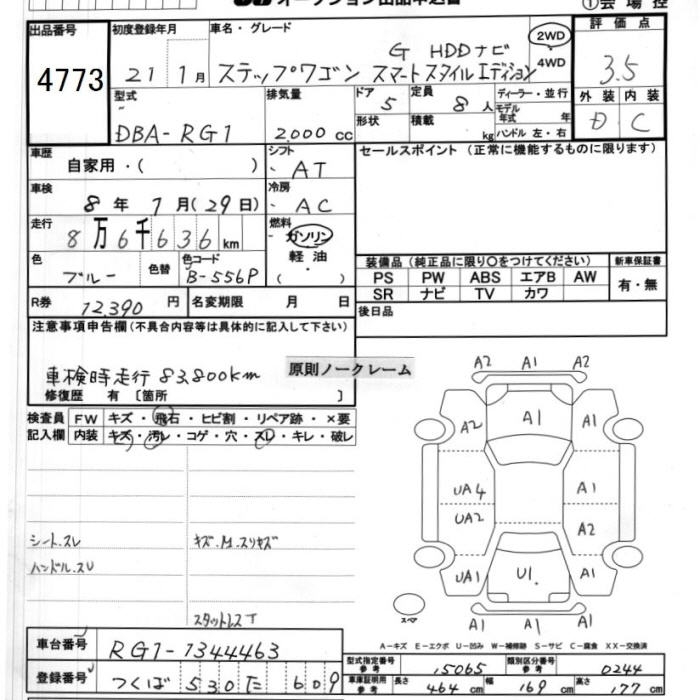 オークション出品申込書
①会場控
出品番号 初度登録年月 車名・グレード 評価点
4773
21 1月
G HDDナビ 2WD
ステップワゴン スマートスタイルエディション 4WD
3.5
型式 排気量 ドア 5 定員 8人 ディーラー・並行 外装 内装
DBA-RG1 2000 cc 形状 積載 kg モデル年式 年 ハンドル 左・右
D C
車歴 自家用・( ) シフト AT セールスポイント (正常に機能するものに限ります)
車検 8年 1月(29日) 冷房 AC
走行 8万6千636km 燃料 ガソリン
軽油
・
( )
色 ブルー 色替 色コード B-556P
装備品(純正品に限り○をつけてください) 新車保証書
PS PW ABS エアB AW 有・無
SR ナビ TV カワ
R券 12,390 円 名変期限 月 日 後日品
注意事項申告欄(不具合内容等は具体的に記入して下さい)
車検時走行 83,800km
原則ノークレーム
修復歴 有 〔箇所 〕
検査員 FW キズ・飛石・ヒビ割・リペア跡・×要
記入欄 内装 キズ・汚レ・コゲ・穴・スレ・キレ・破レ
A2 A1 A2
A2 A1 A1
UA4 A1
UA2 A2
UA1 U1. A1
A1 A1 A1
シート.スレ キズ.M.スリキズ
ハンドル.スレ
スタットレス T
スペア
A-キズ E-エクボ U-凹み W-補修跡 S-サビ C-腐食 XX-交換済
車台番号 RG1-1344463
登録番号 つくば 530 た 609
型式指定番号 参考 15065 類別区分番号 参考 0244
車庫証明用 参考 長さ 464 cm 幅 169 cm 高さ 177 cm